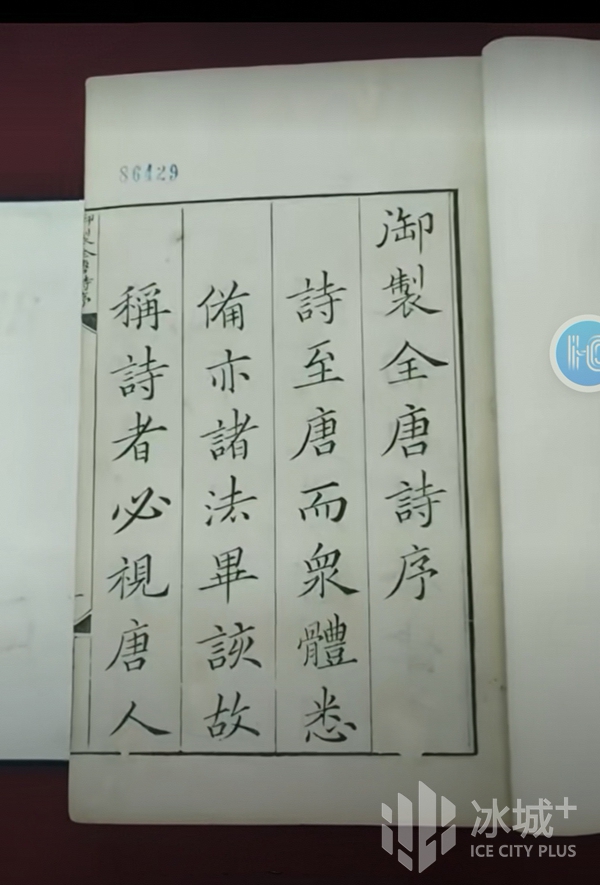 86429
御製全唐詩序
詩至唐而衆體悉
備亦諸法畢該故
稱詩者必視唐人
御製全唐詩序
冰城+
ICE CITY PLUS